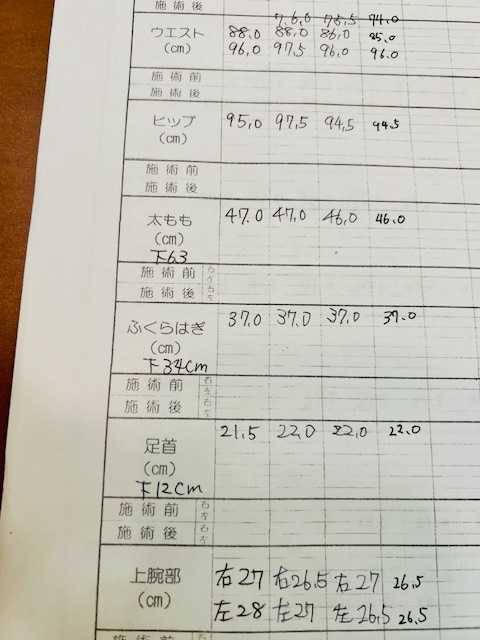 施術後
76.0 75.5 74.0
ウエスト 88.0 88.0 86.0 85.0
(cm) 96.0 97.5 96.0 96.0
施術前
施術後
ヒップ 95.0 97.5 94.5 94.5
(cm)
施術前
施術後
太もも 47.0 47.0 46.0 46.0
(cm)
下63
施術前 右 左
施術後 右 左
ふくらはぎ 37.0 37.0 37.0 37.0
(cm)
下34cm
施術前 右 左
施術後 右 左
足首 21.5 22.0 22.0 22.0
(cm)
下12cm
施術前 右 左
施術後 右 左
上腕部 右27 右26.5 右27 26.5
(cm) 左28 左27 左26.5 26.5
右